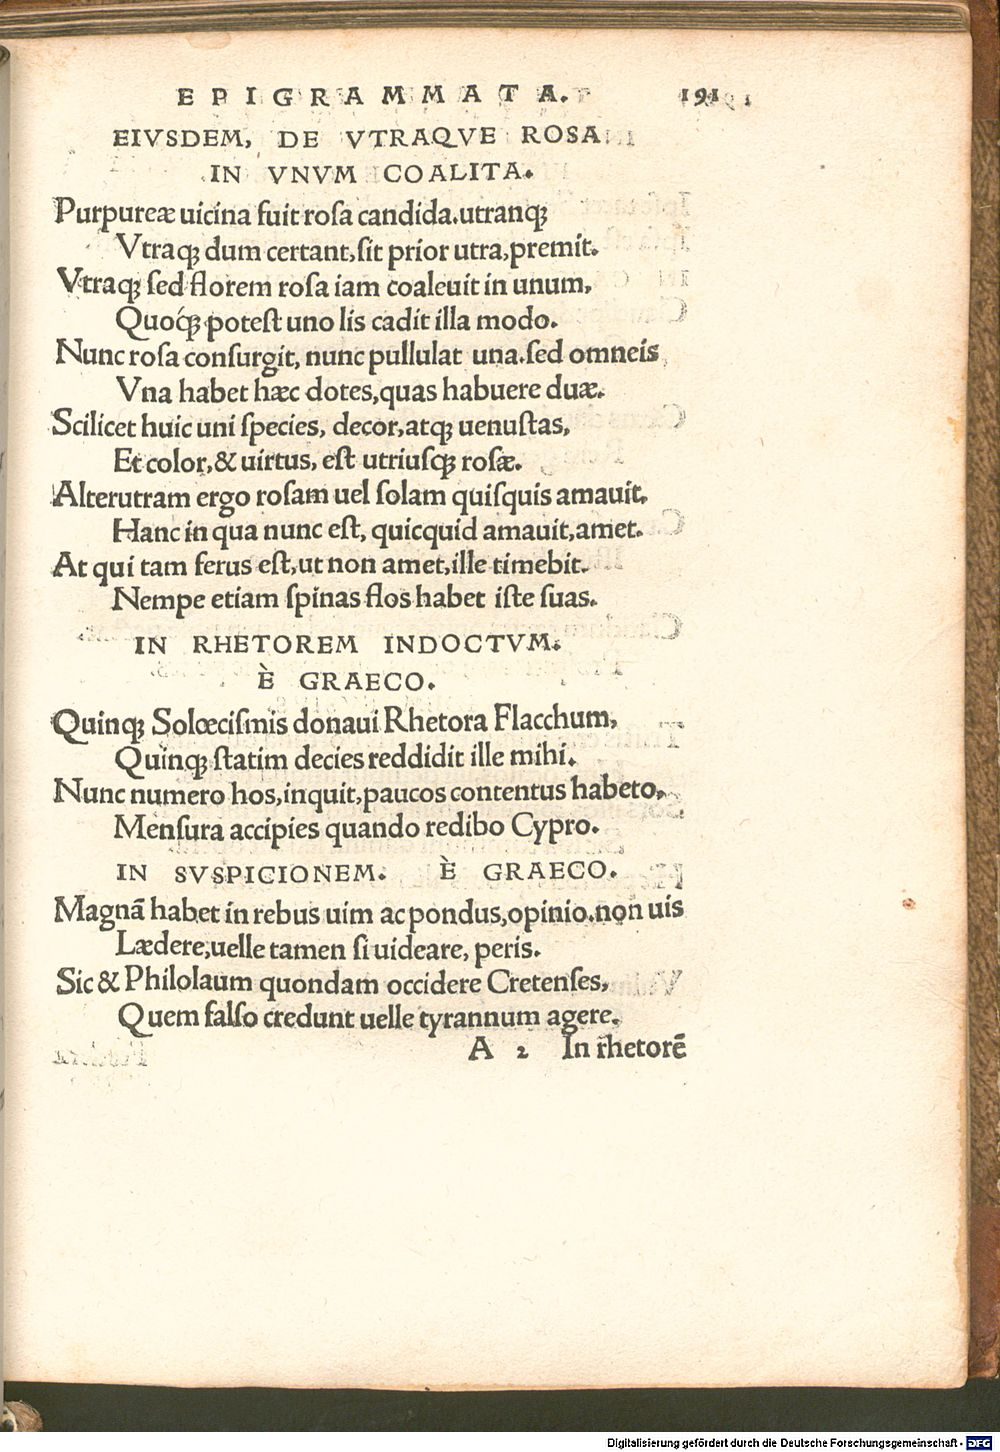 EPIGRAMMATA. 191
EIVSDEM, DE VTRAQVE ROSA
IN VNVM COALITA.
Purpureæ uicina fuit rosa candida. utranqꝫ
Vtraqꝫ dum certant, sit prior utra, premit.
Vtraqꝫ sed florem rosa iam coaleuit in unum,
Quoqꝫ potest uno lis cadit illa modo.
Nunc rosa consurgit, nunc pullulat una. sed omneis
Vna habet hæc dotes, quas habuere duæ.
Scilicet huic uni species, decor, atqꝫ uenustas,
Et color, & uirtus, est utriusqꝫ rosæ.
Alterutram ergo rosam uel solam quisquis amauit,
Hanc in qua nunc est, quicquid amauit, amet.
At qui tam ferus est, ut non amet, ille timebit.
Nempe etiam spinas flos habet iste suas.
IN RHETOREM INDOCTVM.
È GRAECO.
Quinqꝫ Solœcismis donaui Rhetora Flacchum,
Quinqꝫ statim decies reddidit ille mihi.
Nunc numero hos, inquit, paucos contentus habeto,
Mensura accipies quando redibo Cypro.
IN SVSPICIONEM. È GRAECO.
Magnã habet in rebus uim ac pondus, opinio. non uis
Lædere, uelle tamen si uideare, peris.
Sic & Philolaum quondam occidere Cretenses,
Quem falso credunt uelle tyrannum agere.
A 2 In rhetorẽ
Digitalisierung gefördert durch die Deutsche Forschungsgemeinschaft - DFG